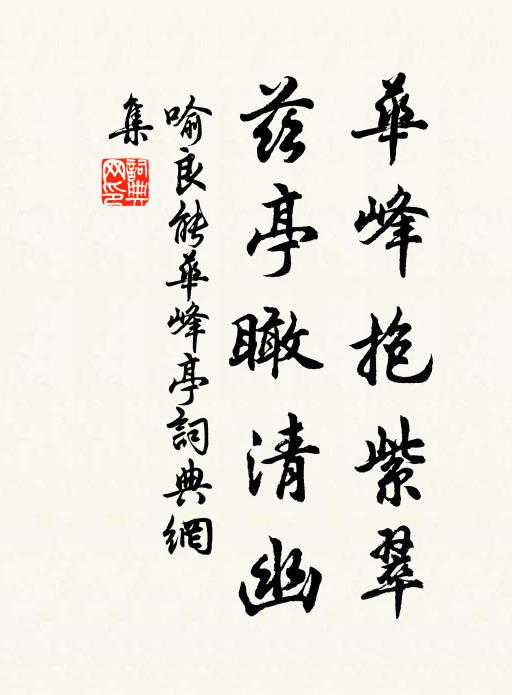 華峰抱紫翠
茲亭瞰清幽
喻良能華峰亭詞典網
集
詞典
網印